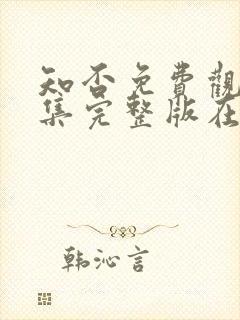 知否免費觀
集完整版在
韩沁言